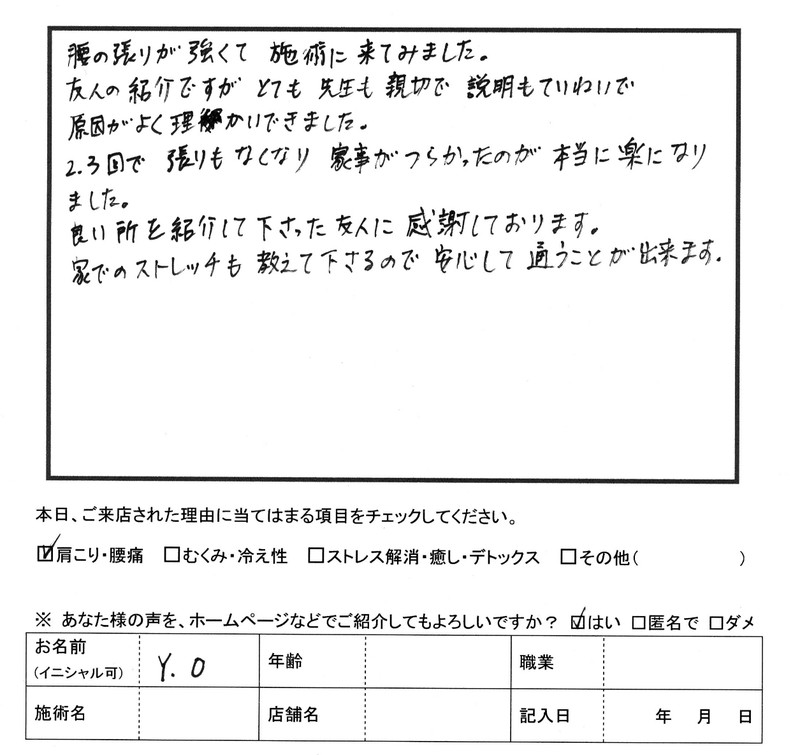 腰の張りが強くて 施術に 来てみました。
友人の紹介ですが とても 先生も 親切で 説明もていねいで
原因がよく理かいできました。
2.3回で 張りもなくなり 家事がつらかったのが 本当に楽になり
ました。
良い所を紹介して下さった友人に 感謝しております。
家でのストレッチも 教えて下さるので 安心して 通うことが出来ます。
本日、ご来店された理由に当てはまる項目をチェックしてください。
☑肩こり・腰痛 □むくみ・冷え性 □ストレス解消・癒し・デトックス □その他( )
※ あなた様の声を、ホームページなどでご紹介してもよろしいですか? ☑はい □匿名で □ダメ
お名前 (イニシャル可) Y.O 年齢 職業
施術名 店舗名 記入日 年 月 日